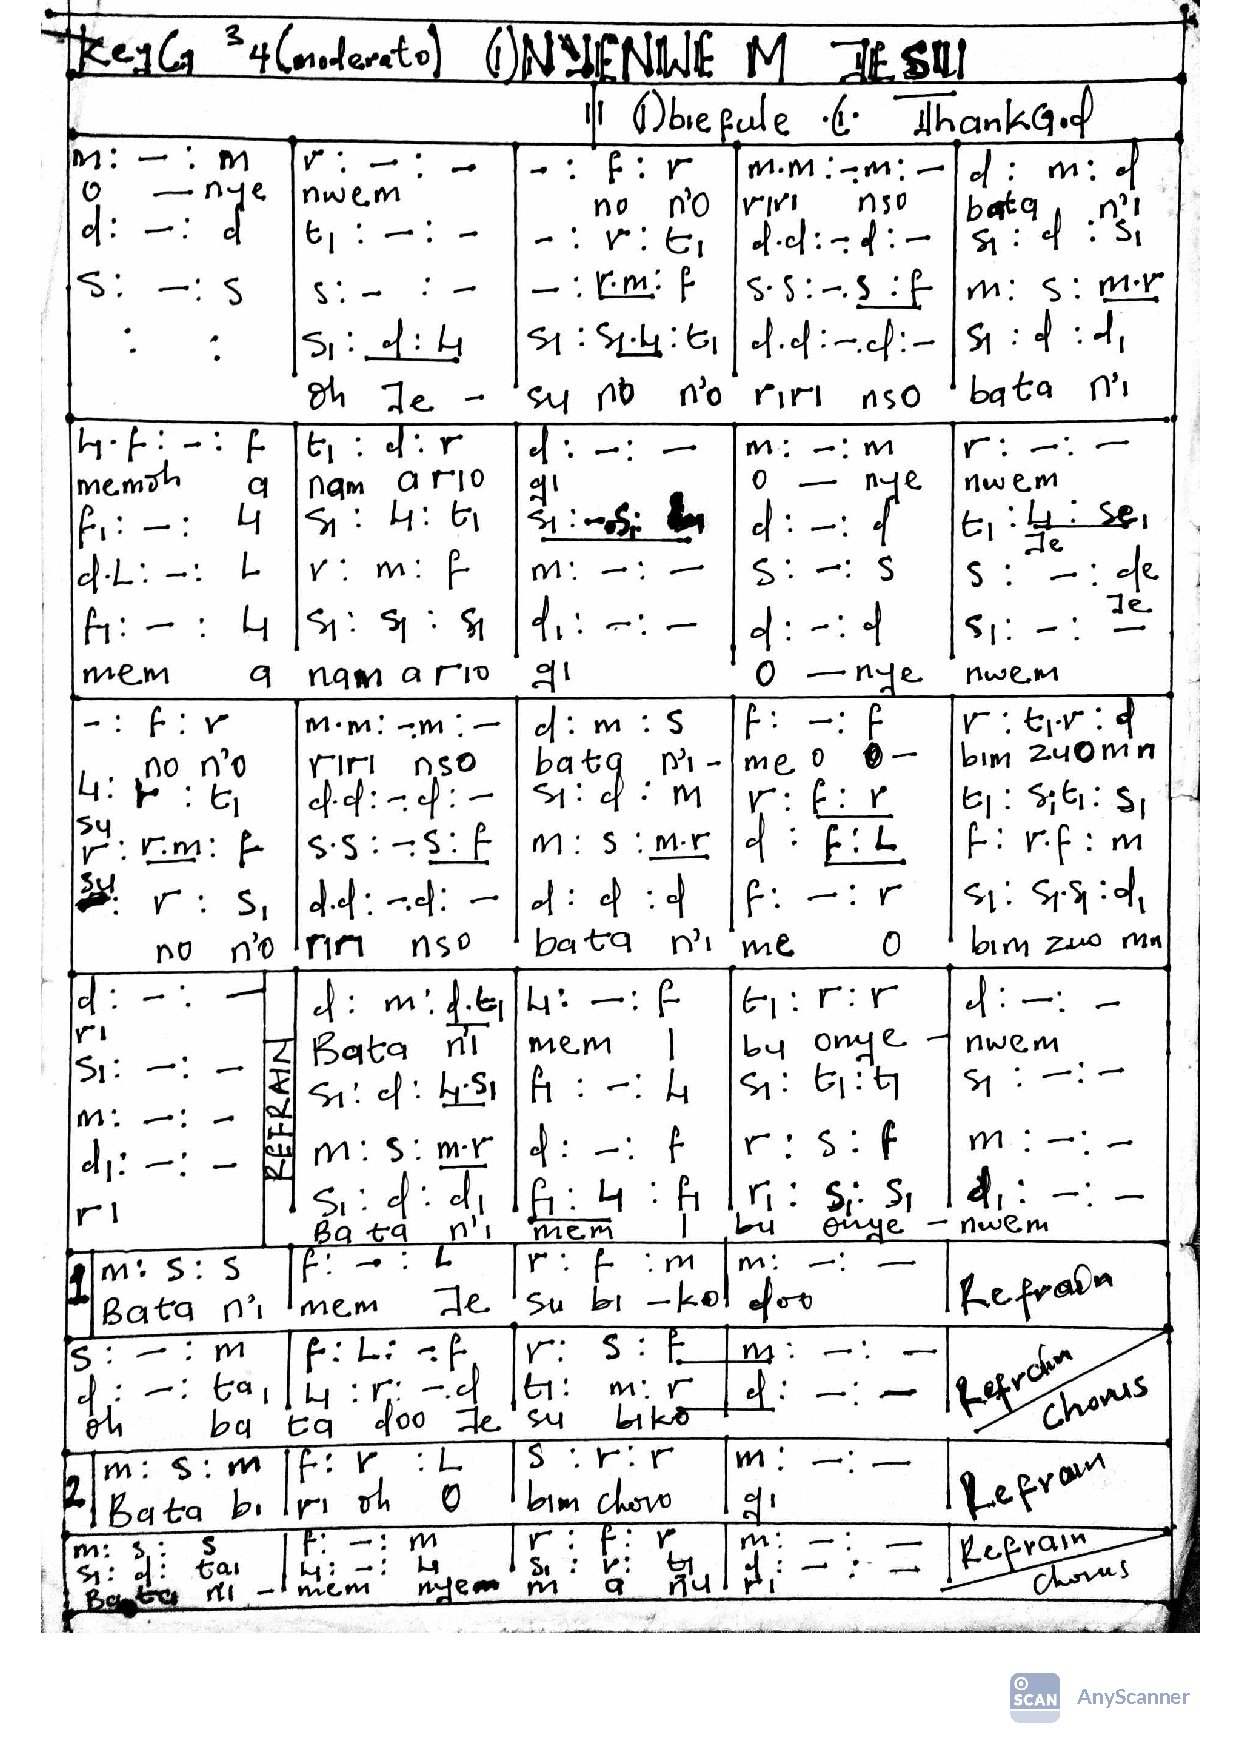 Key G 3/4 (moderato) ONYENWE M JESU
Obiefule .C. ThankGod
m: — : m | r : — : — | - : f : r | m.m : -.m : — | d : m : d
o — nye | nwem | no n'o | riri nso | bata n'i
d : — : d | t₁ : — : - | - : r : t₁ | d.d : -.d : — | s₁ : d : s₁
s : — : s | s : - : - | — : r.m : f | s.s : -.s : f | m : s : m.r
: : | s₁ : d : l₁ | s₁ : s₁.l₁ : t₁ | d.d : -.d : — | s₁ : d : d₁
oh Je - | su no n'o | riri nso | bata n'i
l₁.f : - : f | t₁ : d : r | d : — : — | m : — : m | r : — : —
memoh a | nam a rio | gi | o — nye | nwem
f₁ : — : l₁ | s₁ : l₁ : t₁ | s₁ : -.s₁ : | d : — : d | t₁ : l₁ : se₁
Je
d.l : — : l | r : m : f | m : — : — | s : — : s | s : — : de
Je
f₁ : — : l₁ | s₁ : s₁ : s₁ | d₁ : — : — | d : — : d | s₁ : — : —
mem a | nam a rio | gi | O — nye | nwem
- : f : r | m.m : -.m : — | d : m : s | f : — : f | r : t₁.r : d
no n'o | riri nso | bata n'i - | me o o — | bim zuomn
l₁ : r : t₁ | d.d : -.d : — | s₁ : d : m | r : f : r | t₁ : s₁t₁ : s₁
su
r : r.m : f | s.s : -.s : f | m : s : m.r | d : f : l | f : r.f : m
su
: r : s₁ | d.d : -.d : — | d : d : d | f : — : r | s₁ : s₁.s₁ : d₁
no n'o | riri nso | bata n'i | me o | bim zuo mn
d : — : — | REFRAIN | d : m : d.t₁ | l₁ : — : f | t₁ : r : r | d : — : —
ri | Bata n'i | mem I | bu onye - | nwem
s₁ : — : — | s₁ : d : l₁.s₁ | f₁ : — : l₁ | s₁ : t₁ : t₁ | s₁ : — : —
m : — : — | m : s : m.r | d : — : f | r : s : f | m : — : —
d₁ : — : — | s₁ : d : d₁ | f₁ : l₁ : f₁ | r₁ : s₁ : s₁ | d₁ : — : —
ri | Bata n'i | mem I | bu onye - | nwem
1 | m : s : s | f : — : l | r : f : m | m : — : — | Refrain
Bata n'i | mem Je | su bi - ko | doo
s : — : m | f : l : -.f | r : s : f | m : — : — | Refrain
d : — : ta₁ | l₁ : r : -.d | t₁ : m : r | d : — : — | Chorus
oh ba | ta doo Je | su biko
2 | m : s : m | f : r : l | s : r : r | m : — : — | Refrain
Bata bi | ri oh O | bim choro | gi
m : s : s | f : — : m | r : f : r | m : — : — | Refrain
s₁ : d : ta₁ | l₁ : — : l₁ | s₁ : r : t₁ | d : — : — | Chorus
Bata ni - | mem nyem | m a nu | ri
SCAN AnyScanner